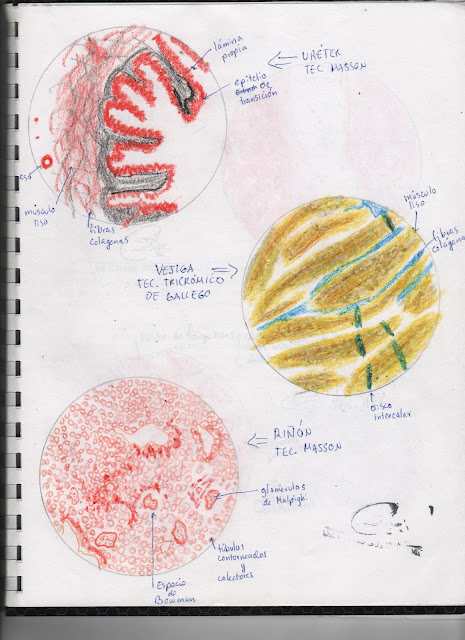 lámina
propia
URÉTER
TEC. MASSON
epitelio
de
transición
músculo
liso
fibras
colágenas
músculo
liso
fibras
colágenas
VEJIGA
TEC. TRICRÓMICO
DE GALLEGO
disco
intercalar
RIÑÓN
TEC. MASSON
glomérulos
de Malpighi
túbulos
contorneados
y
colectores
Espacio
de
Bowman